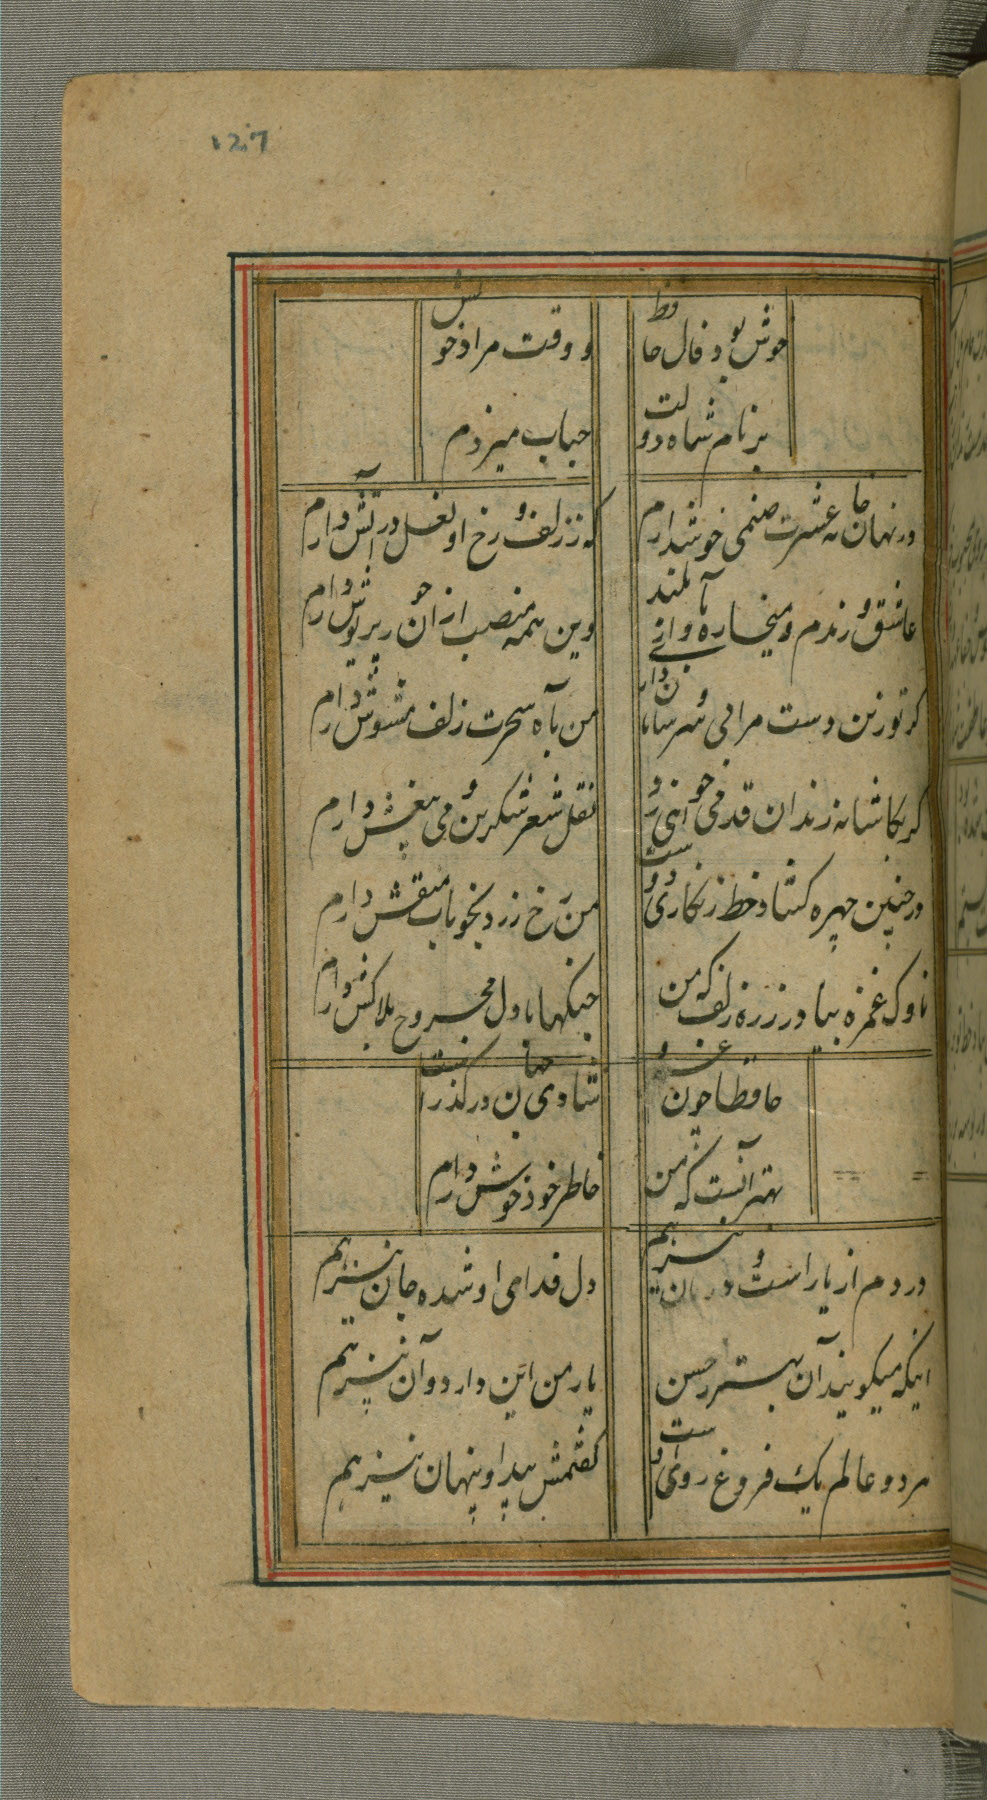 127
خوش بود فال حافظ و وقت مراد خوش
بر نام شاه دولت حباب میزدم
در نهان خانه عشرت صنمی خوش دارم که ززلف و رخ او نعل در آتش دارم
عاشق و رندم و میخاره بآواز بلند وین همه منصب ازان حور پریوش دارم
کر تو زین دست مرا بی سر و سامان داری من بآه سحرت زلف مشوش دارم
کر بکاشانه رندان قدمی خواهی زد نقل شعر شکرین و می بیغش دارم
ور چنین چهره کشاد خط زنکاری دوست من رخ زرد بخوناب منقش دارم
ناوک غمزه بیاور زره زلف که من جنکها با دل مجروح بلاکش دارم
حافظا چون غم و شادی جهان در کذر است
بهتر آنست که من خاطر خود خوش دارم
دردم از یار است و درمان نیز هم دل فدای او شده جان نیز هم
اینکه میکویند آن بهتر ز حسن یار من این دارد و آن نیز هم
هر دو عالم یک فروغ روی اوست کفتمش پیدا و پنهان نیز هم